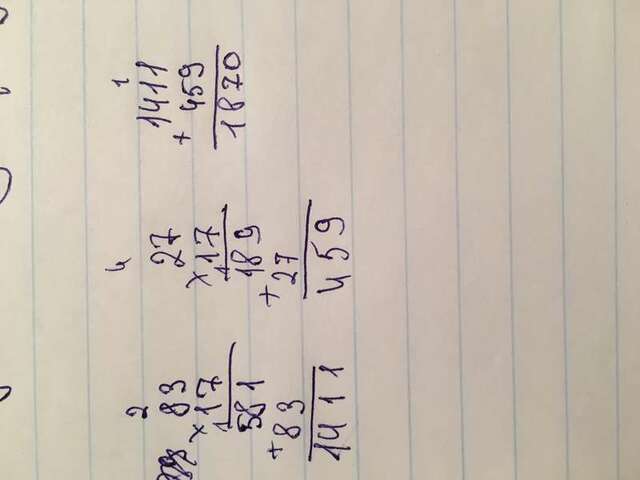 2
83
×17
1
581
+83
1411
4
27
×17
1
189
+27
459
1
1411
+ 459
1870